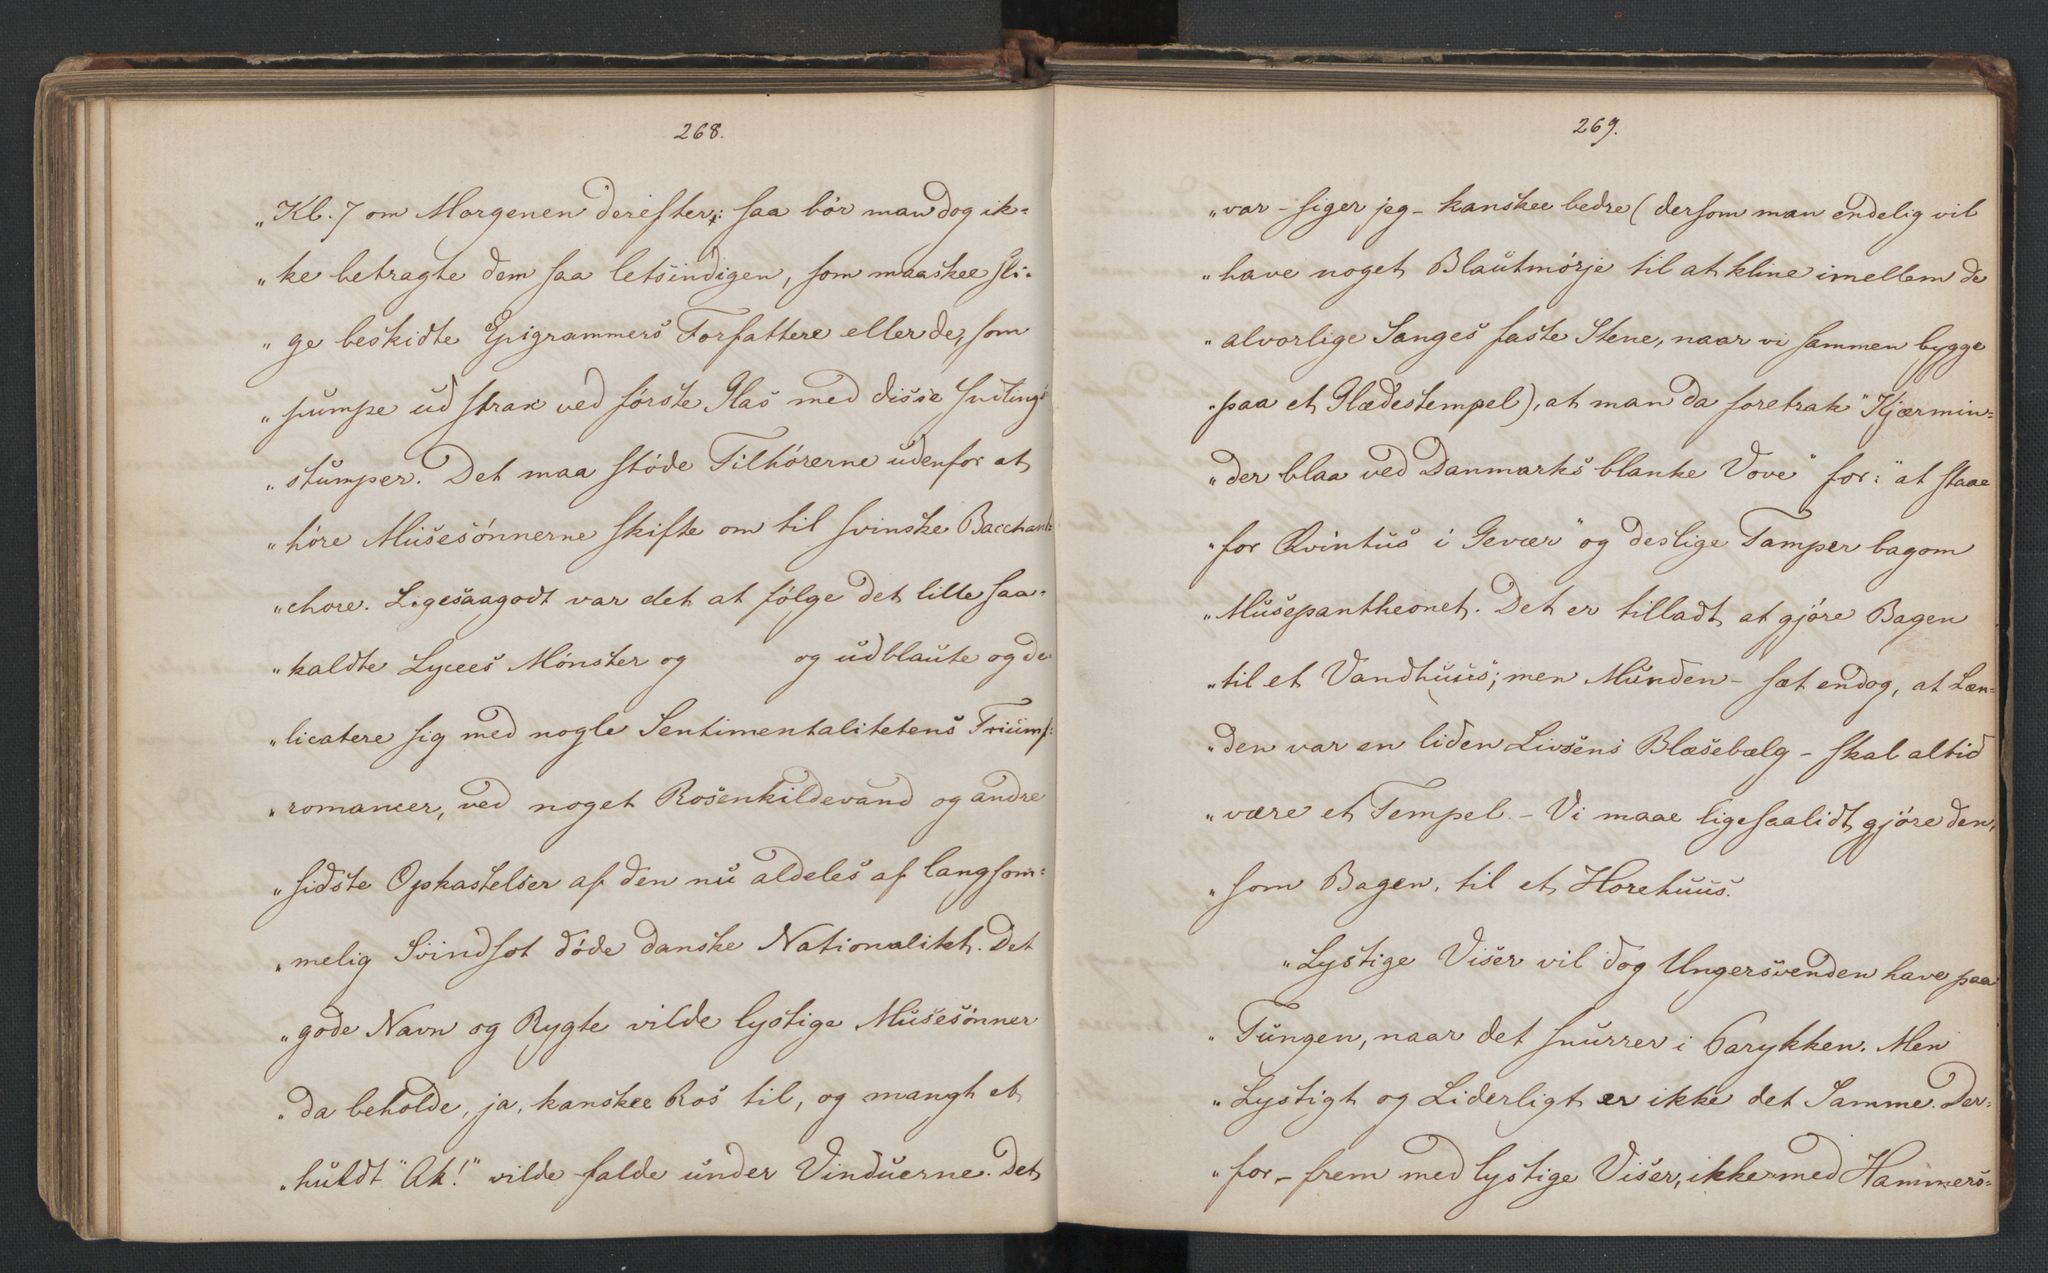 268.
„Kl. 7 om Morgenen derefter; saa bør man dog ik-
„ke betragte dem saa letsindigen, som maaskee sli-
„ge beskidte Epigrammers Forfattere eller de, som
„pumpe ud strax ved første Glas med disse Sudlings-
„stumper. Det maa støde Tilhørerne udenfor at
„høre Musesønnerne skifte om til svinske Bacchant-
„chore. Ligesaagodt var det at følge det lille saa-
„kaldte Lycees Mønster og og udblaute og de-
„licatere sig med nogle Sentimentalitetens Triumf-
„romancer, ved noget Rosenkildevand og andre
„sidste Opkastelser af den nu aldeles af langsom-
„melig Svindsot døde danske Nationalitet. Det
„gode Navn og Rygte vilde lystige Musesønner
„da beholde, ja, kanskee Ros til, og mangt et
„huldt "Ak!" vilde falde under Vinduerne. Det
269.
„var – siger jeg – kanskee bedre (dersom man endelig vil
„have noget Blautmørje til at kline imellem de
„alvorlige Sanges faste Stene, naar vi sammen bygge
„paa et Glædestempel), at man da foretrak "Kjærmin-
„der blaa ved Danmarks blanke Vove" for: "at staae
„for Qvintus i Gevær" og deslige Tamper bagom
„Musepantheonet. Det er tilladt at gjøre Bagen
„til et Vandhuus; men Munden – sæt endog, at Læn-
„den var en liden Livsens Blæsebælg – skal altid
„være et Tempel. – Vi maae ligesaalidt gjøre den,
„som Bagen, til et Horehuus.
„Lystige Viser vil dog Ungersvenden have paa
„Tungen, naar det snurrer i Parykken. Men
„Lystigt og Liderligt er ikke det Samme. Der-
„for – frem med lystige Viser, ikke med Hammers-